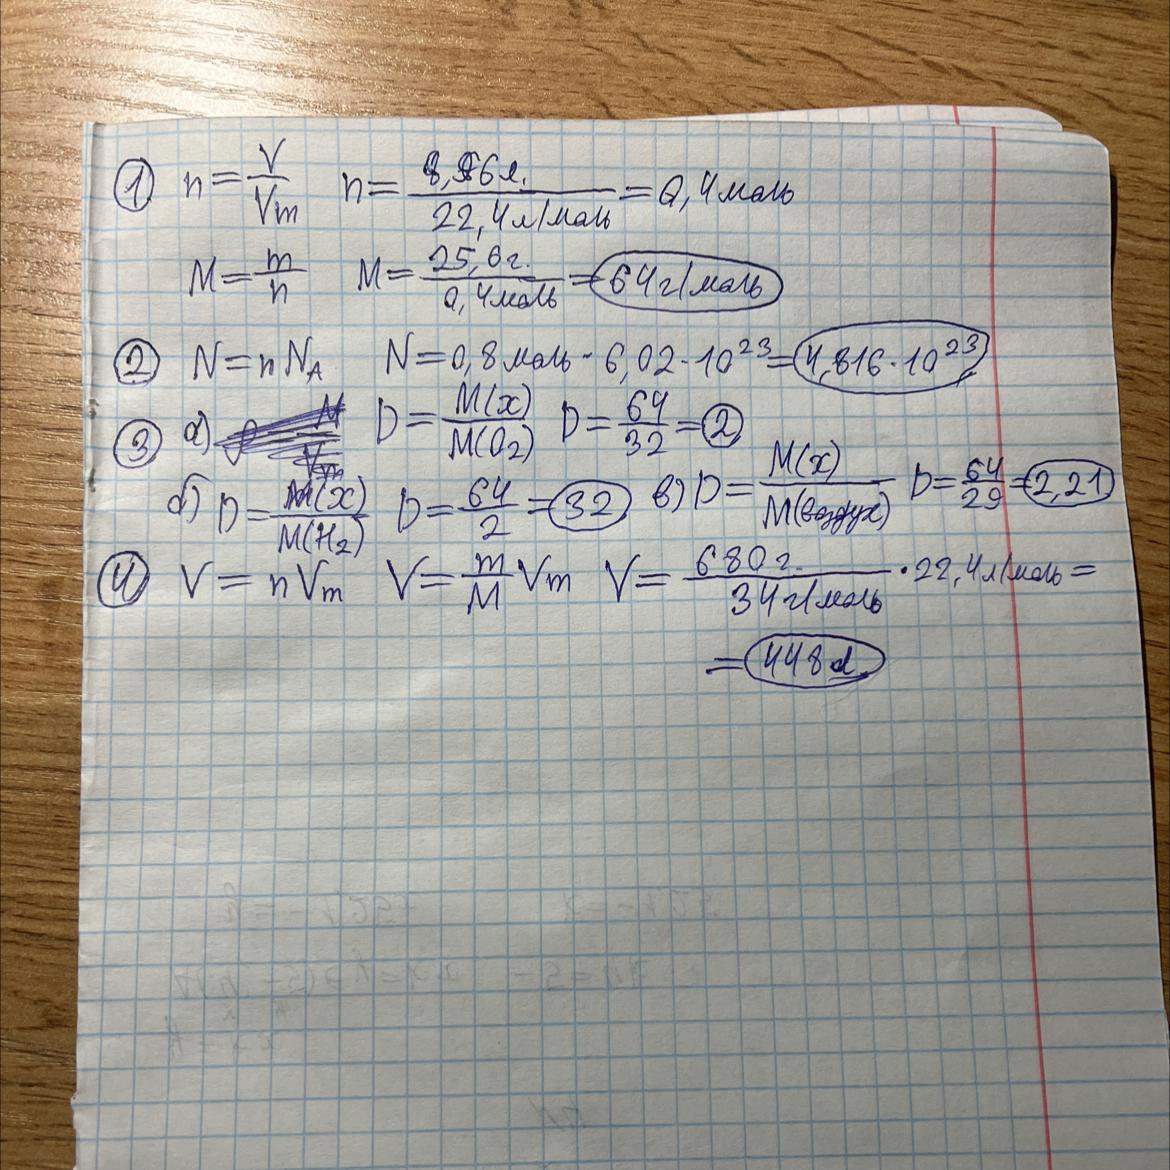 ① n = V/Vm n = 8,96 л./22,4 л/моль = 0,4 моль
M = m/n M = 25,6 г./0,4 моль = 64 г/моль
② N = n N_A N = 0,8 моль · 6,02 · 10²³ = 4,816 · 10²³
③ а) D = M(x)/M(O₂) D = 64/32 = 2
б) D = M(x)/M(H₂) D = 64/2 = 32 в) D = M(x)/M(воздух) D = 64/29 = 2,21
④ V = n Vm V = m/M Vm V = 680 г./34 г/моль · 22,4 л/моль =
= 448 л.